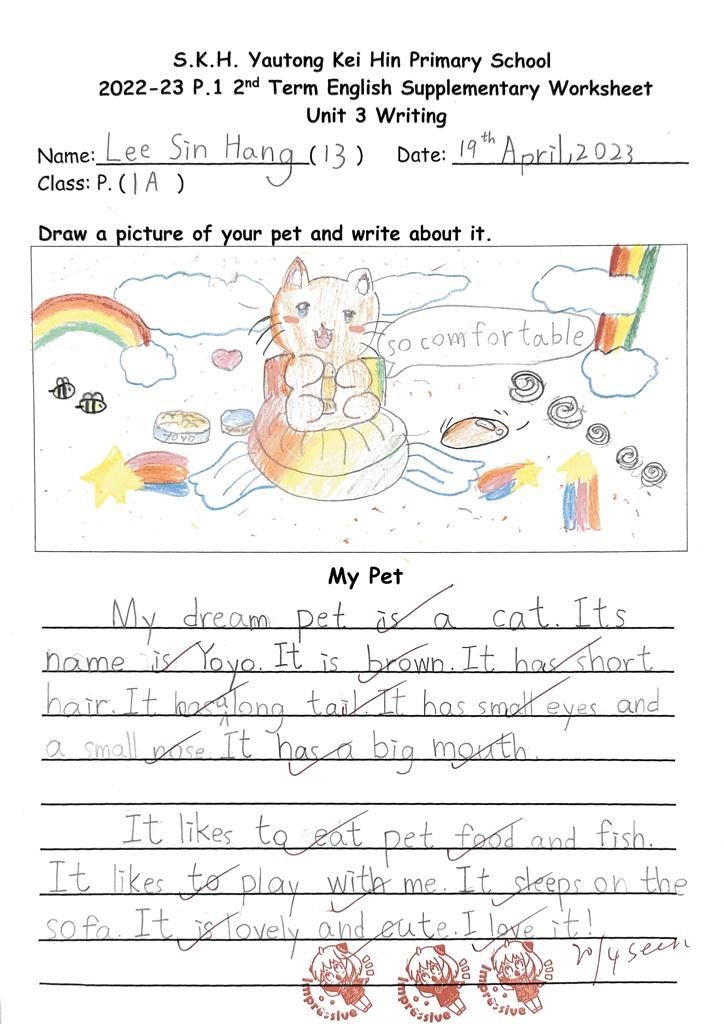 S.K.H. Yautong Kei Hin Primary School
2022-23 P.1 2nd Term English Supplementary Worksheet
Unit 3 Writing
Name: Lee Sin Hang (13) Date: 19th April, 2023
Class: P. (1A)
Draw a picture of your pet and write about it.
so comfortable
YOYO
My Pet
My dream pet is a cat. Its
name is Yoyo. It is brown. It has short
hair. It has a long tail. It has small eyes and
a small nose. It has a big mouth.
It likes to eat pet food and fish.
It likes to play with me. It sleeps on the
sofa. It is lovely and cute. I love it!
20/4 seen
Impressive
Impressive
Impressive